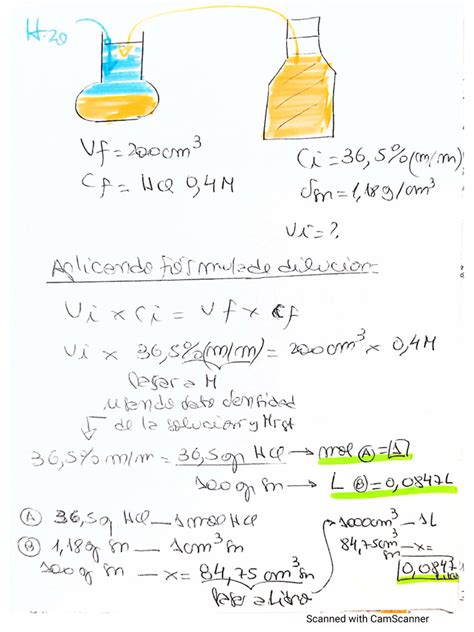 H20
Vf = 200cm³
Cf = HCl 0,4M
Ci = 36,5%(m/m)
δsn = 1,18g/cm³
Vi = ?
Aplicando fórmula de dilución
Vi x Ci = Vf x Cf
Vi x 36,5%(m/m) = 200cm³ x 0,4M
Pasar a M
usando dato densidad
de la solución y Mrst
36,5% m/m = 36,5g HCl → mol Ⓐ = 1
100g sn → L Ⓑ = 0,0847L
Ⓐ 36,5g HCl — 1mol HCl
Ⓑ 1,18g sn — 1cm³ sn
100g sn — x = 84,75 cm³ sn
Pasar a Litro
1000cm³ — 1L
84,75cm³ sn — x =
0,0847 Litro
Scanned with CamScanner